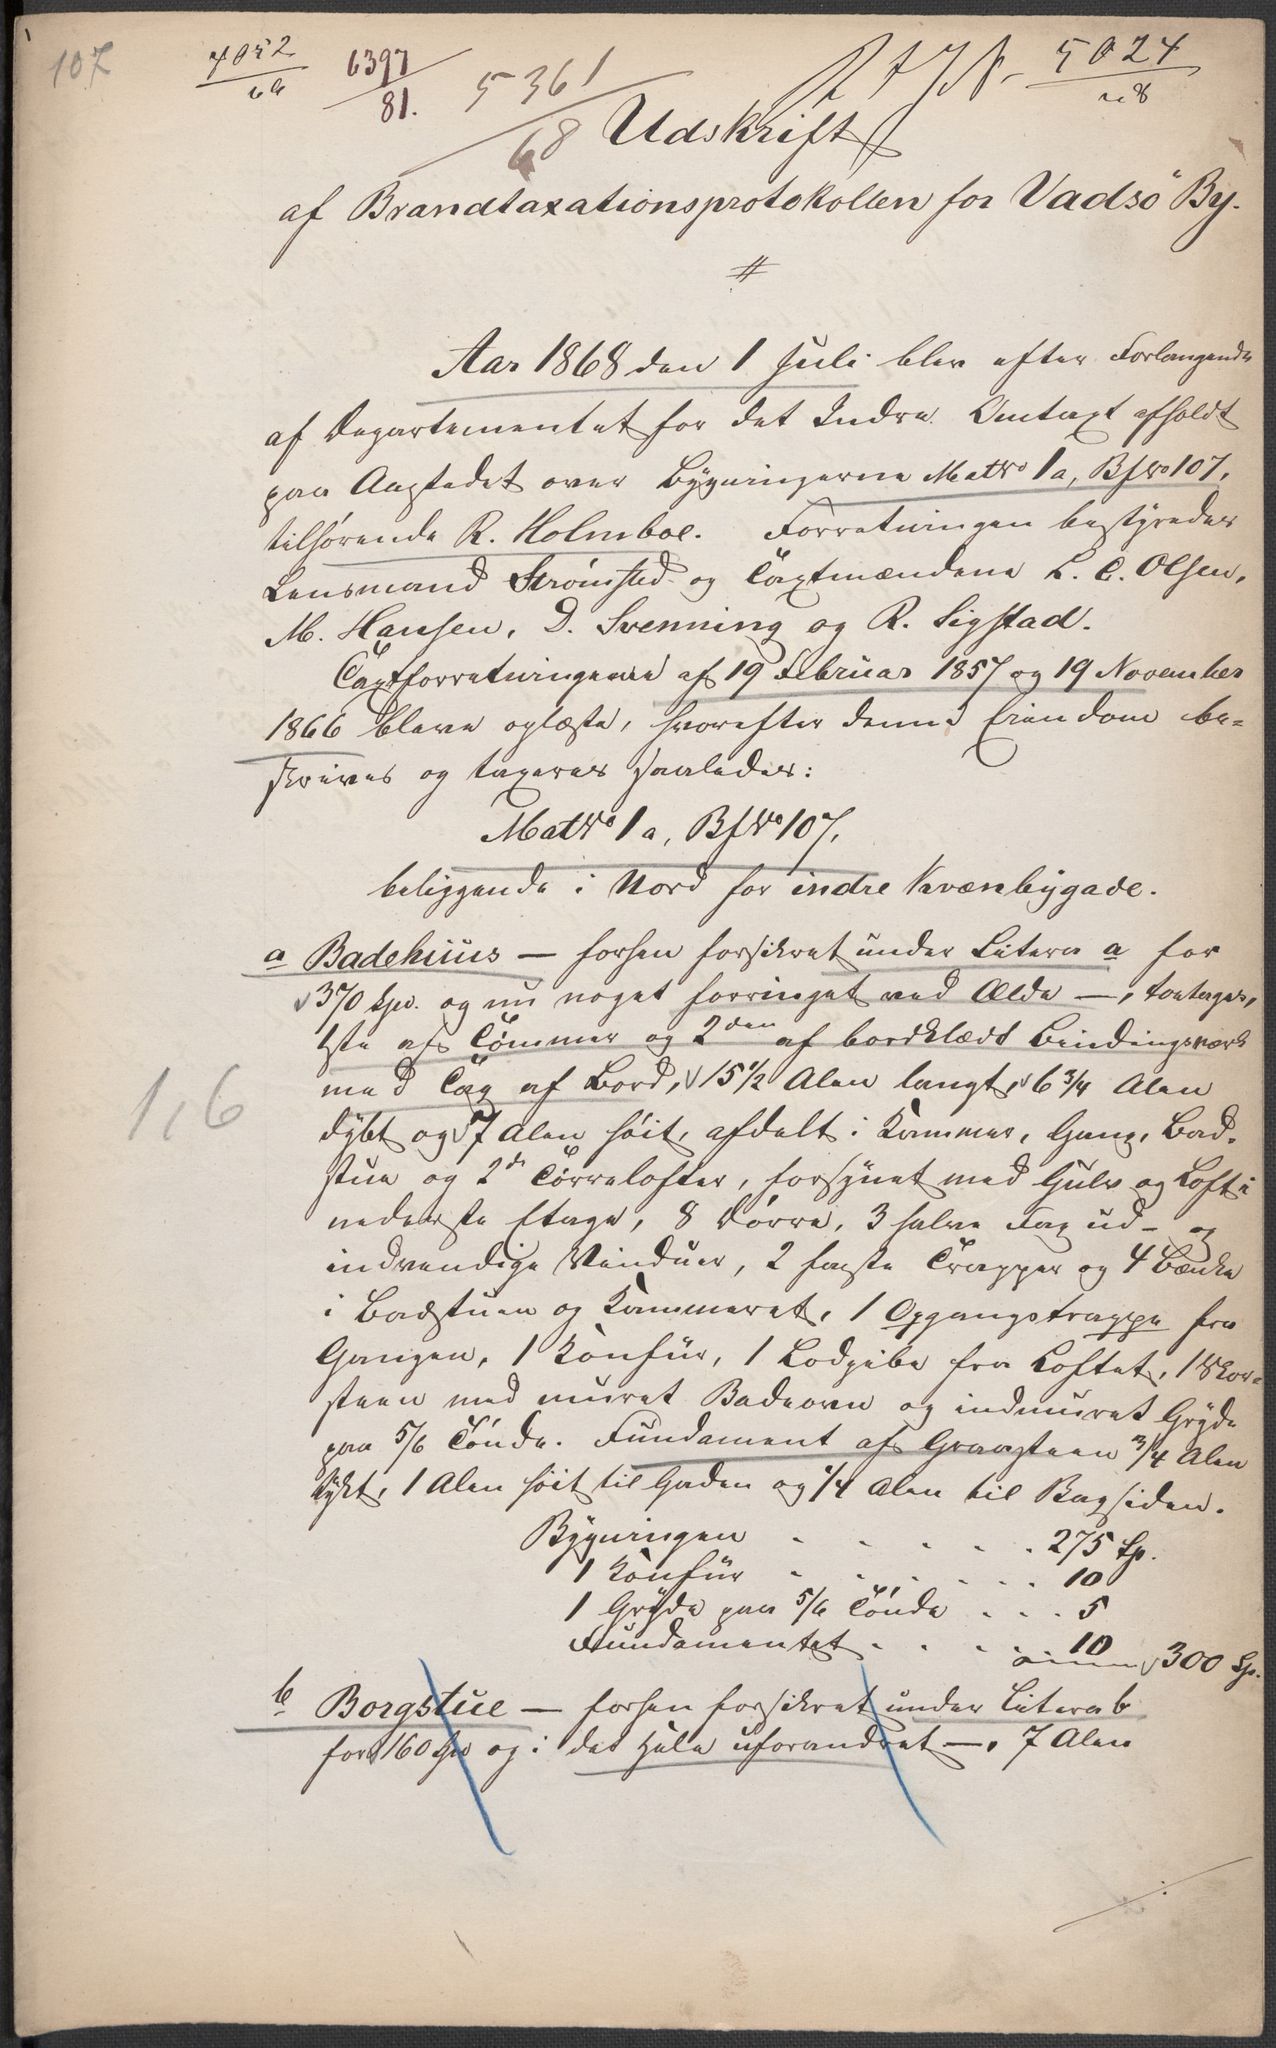 107
6397
81.
5361
68
5024
Udskrift
af Brandtaxationsprotokollen for Vadsö By.
#
Aar 1868 den 1 Juli blev efter Forlangende
af Departementet for det Indre Omtaxt afholdt
paa Aastedet over Bygningerne Mat No 1a, Bf No 107,
tilhørende R. Holmboe. Forretningen bestyredes
Lensmand Strømsted og Taxtmændene L. C. Olsen,
M. Hansen, D. Svenning og R. Sigstad.
Taxtforretningerne af 19 Februar 1857 og 19 November
1866 bleve oplæste, hvorefter denne Eiendom be-
skrives og taxeres saaledes:
Mat No 1a, Bf No 107,
beliggende i Nord for indre Kvænbygade.
a Badehuus — forhen forsikret under Litera a for
370 Spd. og nu noget forringet ved Ælde —, toetages,
1ste af Tømmer og 2den af bordklædt Bindingsværk
med Tag af Bord, 15 1/2 Alen langt, 6 3/4 Alen
dybt og 7 Alen höit, afdelt i Kammer, Gang, Bad-
stue og 2de Tørrelofter, forsynet med Gulv og Loft i
nederste Etage, 8 Dørre, 3 halve Fag ud- og
indvendige Vinduer, 2 faste Trapper og 4 Bænke
i Badstuen og Kammeret, 1 Opgangstrappe fra
Gangen, 1 Konfür, 1 Lodpibe fra Loftet, 1 Skor-
steen med muret Badeovn og indmuret Gryde
paa 5/6 Tønde. Fundament af Graasteen 3/4 Alen
tykt, 1 Alen höit til Gaden og 1/4 Alen til Bagsiden.
1,6
Bygningen . . . . . 275 Sp.
1 Konfür . . . . . . 10
1 Gryde paa 5/6 Tønde . . . 5
Fundamentet . . . . . 10
300 Sp.
b Borgstue — forhen forsikret under Litera b
for 160 Spd og i det Hele uforandret —, 7 Alen